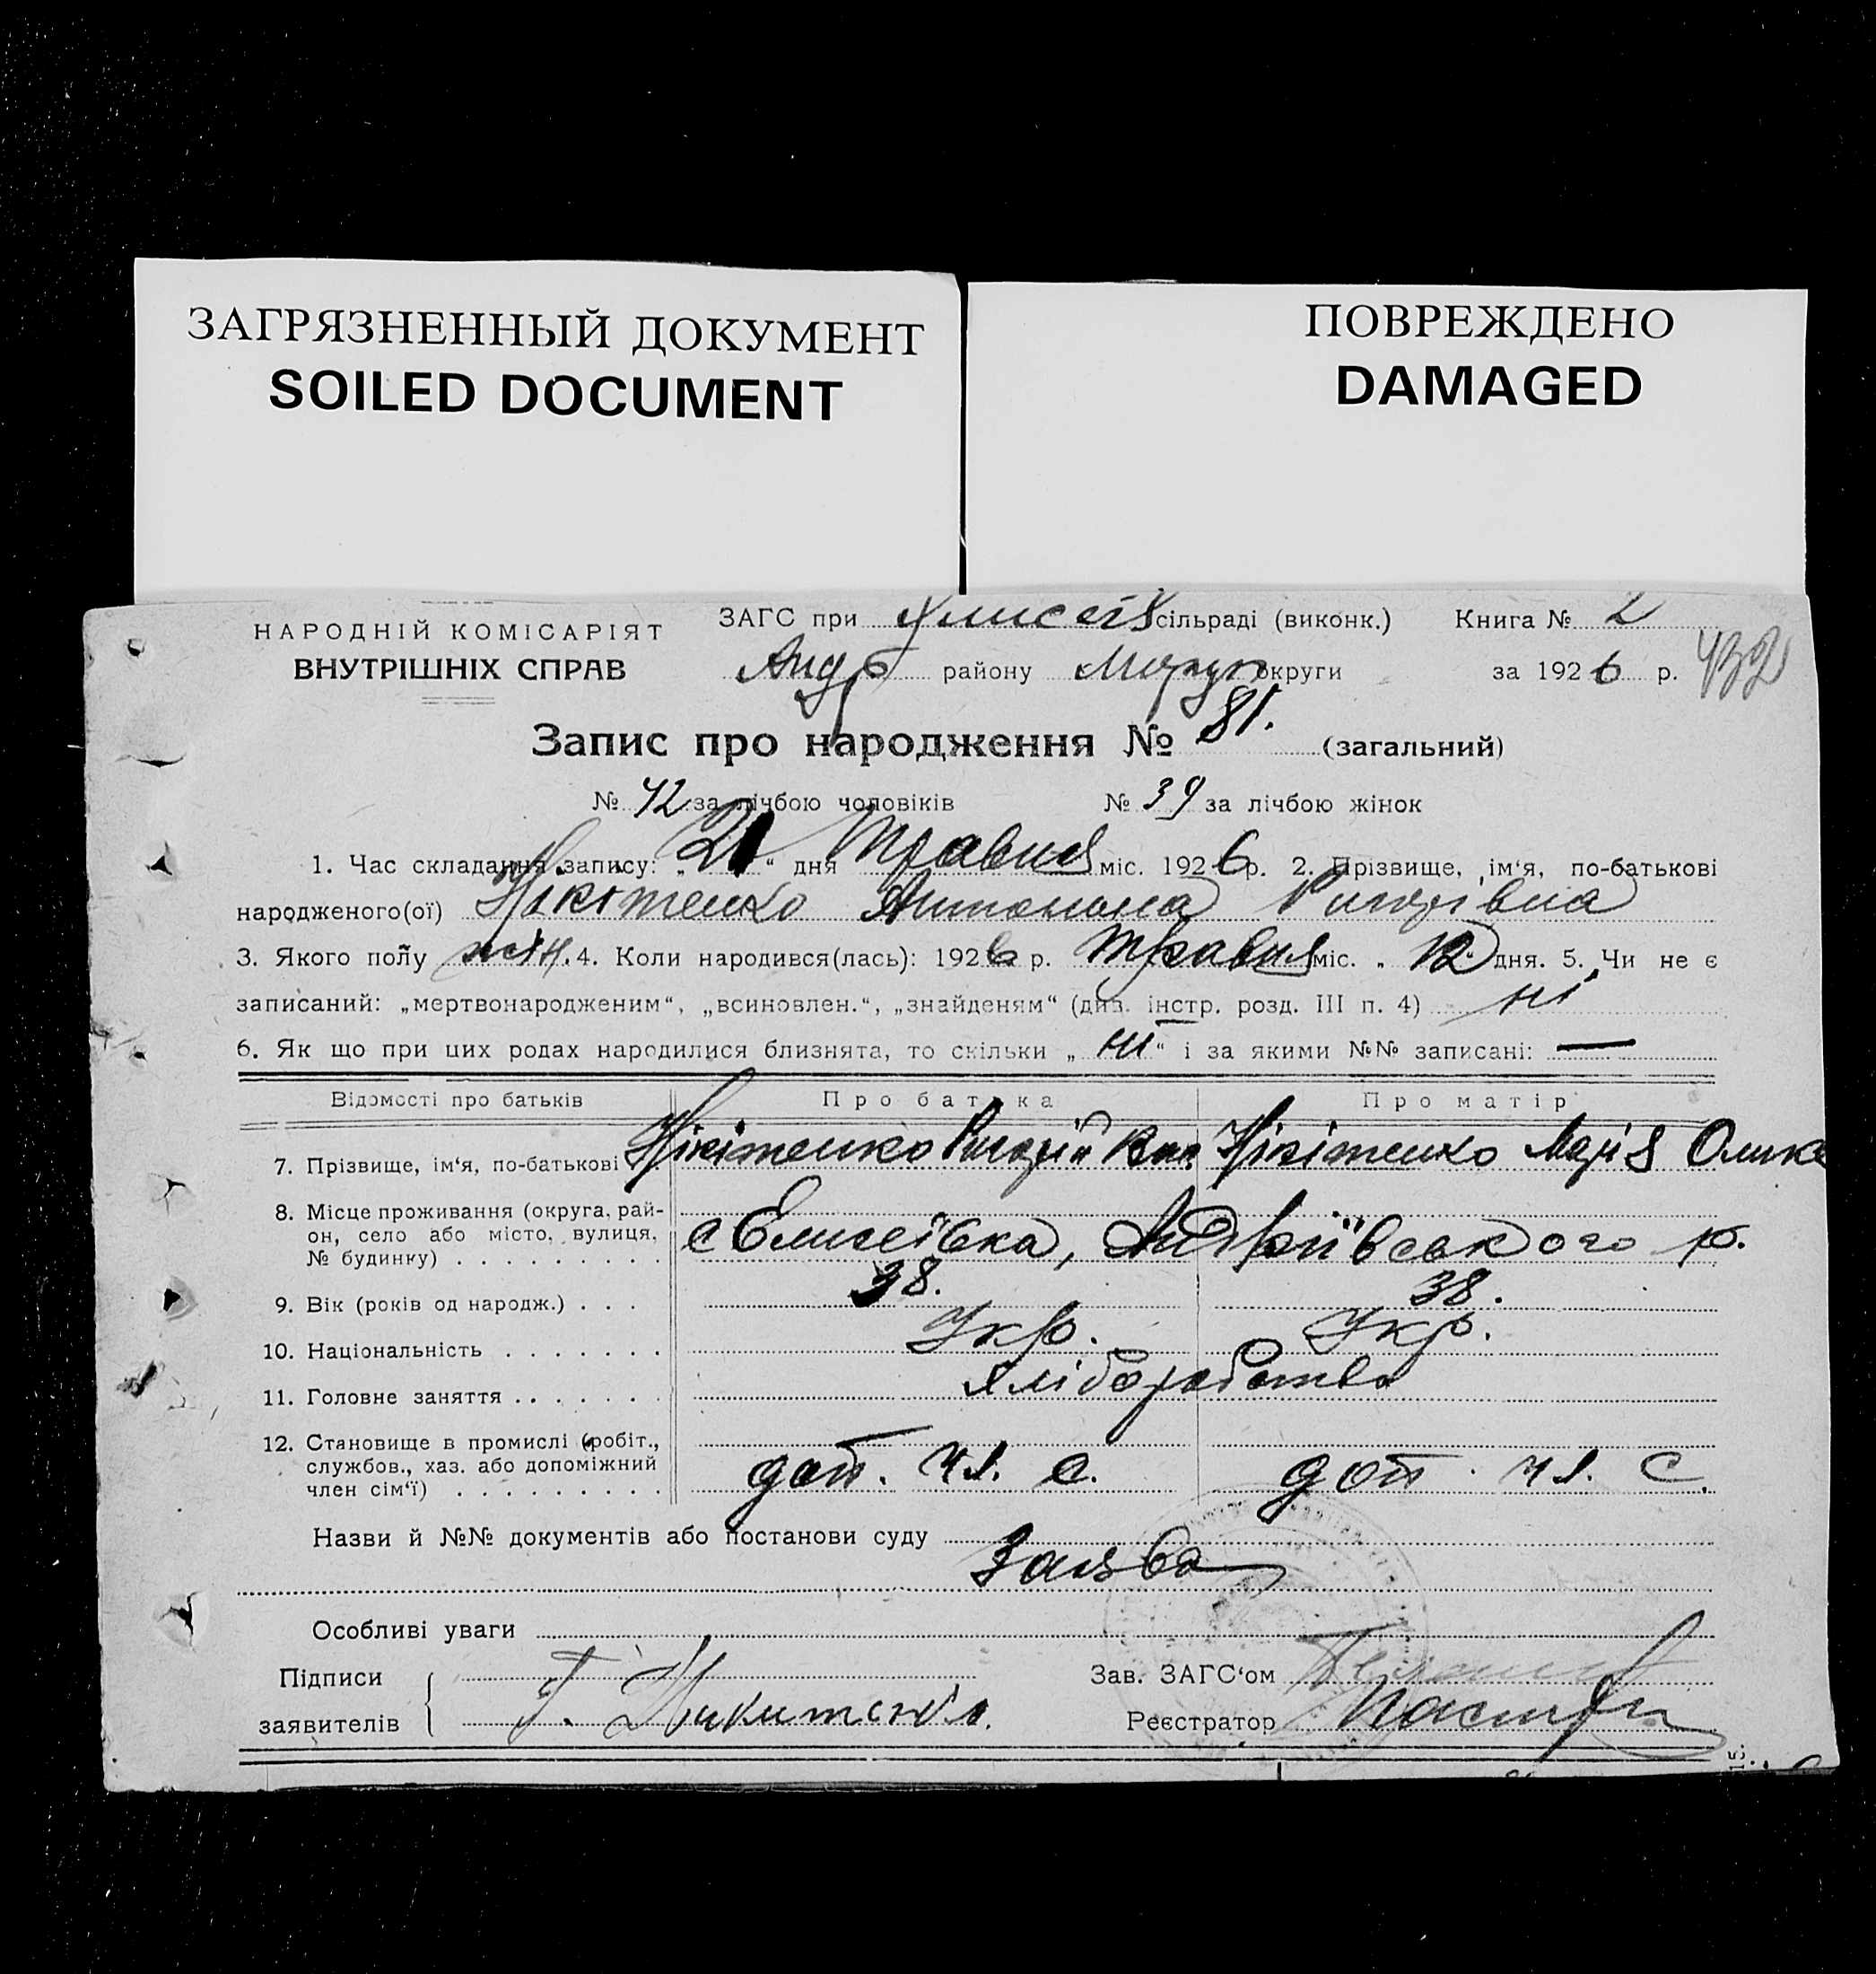 ЗАГРЯЗНЕННЫЙ ДОКУМЕНТ
SOILED DOCUMENT
ПОВРЕЖДЕНО
DAMAGED
НАРОДНІЙ КОМІСАРІЯТ
ВНУТРІШНІХ СПРАВ
ЗАГС при сільраді (виконк.) Книга № 2
Андр району Маріуп округи за 1926 р.
Запис про народження № 81. (загальний)
№ 42 за лічбою чоловіків № 39 за лічбою жінок
1. Час складання запису: „21“ дня Травня міс. 1926 р. 2. Прізвище, ім‘я, по-батькові
народженого(ої) Нікітенко Антонина Григорівна
3. Якого полу жін. 4. Коли народився(лась): 1926 р. Травня міс. „12 дня. 5. Чи не є
записаний: „мертвонародженим“, „всиновлен.“, „знайденям“ (див. інстр. розд. III п. 4) ні
6. Як що при цих родах народилися близнята, то скільки „ні“ і за якими №№ записані: —
Відомості про батьків Про батька Про матір
7. Прізвище, ім‘я, по-батькові Нікітенко Григорій Нікітенко Марія
8. Місце проживання (округа, рай-
он, село або місто, вулиця,
№ будинку) с Елисеївка, Андріївського р.
9. Вік (років од народж.) 38. 38.
10. Національність Укр. Укр.
11. Головне заняття хліборобство
12. Становище в промислі (робіт.,
службов., хаз. або допоміжний
член сім‘ї) доп. чл. с. доп. чл. с.
Назви й №№ документів або постанови суду
Заява
Особливі уваги
Підписи
заявителів Г. Никитенко.
Зав. ЗАГС‘ом
Реєстратор